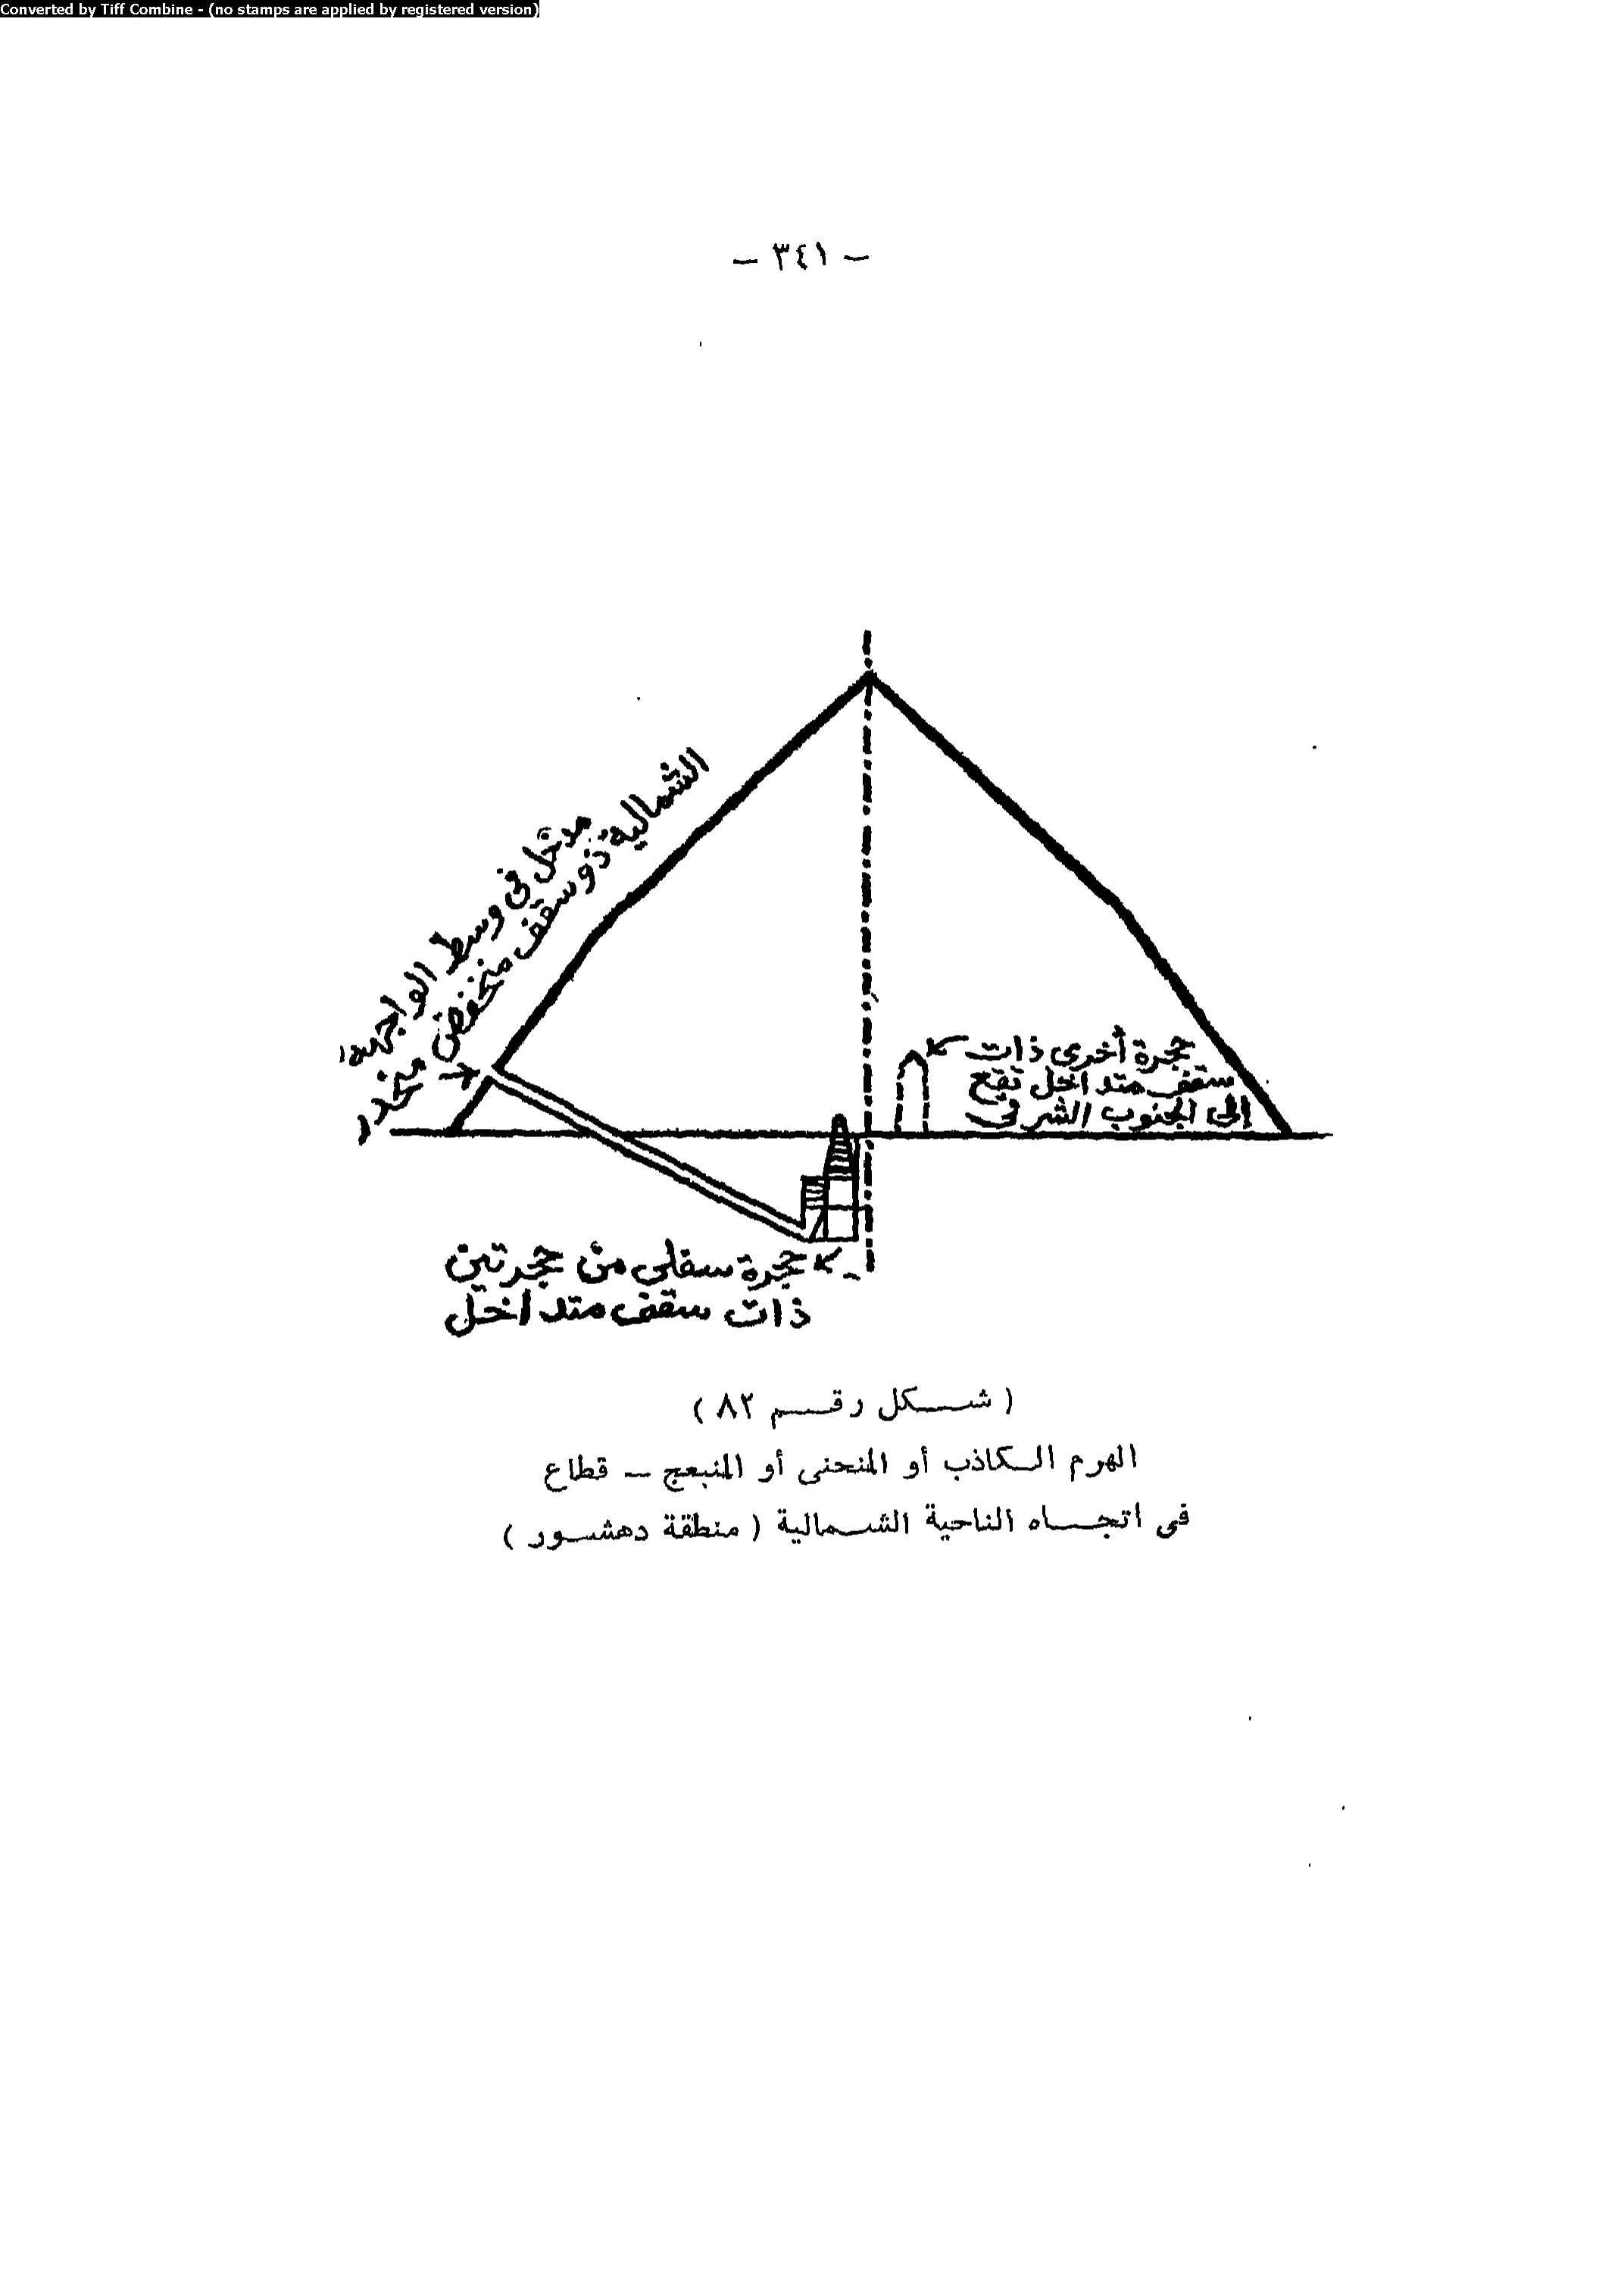 Converted by Tiff Combine - (no stamps are applied by registered version)
– ٣٤١ –
مدخل فى وسط الواجهة
الشمالية ذو سقف منخفض منحدر
حجرة أخرى ذات
سقف متداخل تقع
إلى الجنوب الشرقى
حجرة سفلى من حجرتين
ذات سقف متداخل
( شكل رقم ٨٢ )
الهرم الكاذب أو المنحنى أو المنبعج – قطاع
فى اتجاه الناحية الشمالية ( منطقة دهشور )